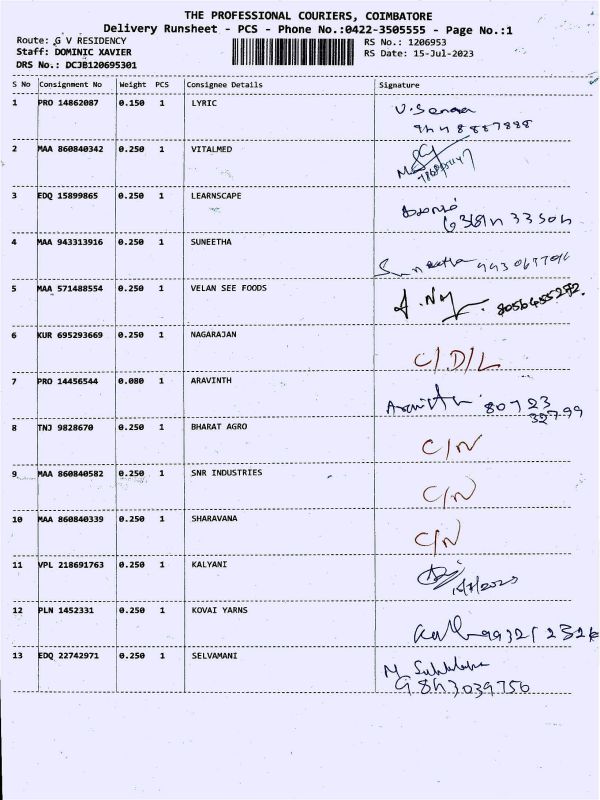 THE PROFESSIONAL COURIERS, COIMBATORE
Delivery Runsheet - PCS - Phone No.:0422-3505555 - Page No.:1
Route: G V RESIDENCY RS No.: 1206953
Staff: DOMINIC XAVIER RS Date: 15-Jul-2023
DRS No.: DCJB120695301
S No Consignment No Weight PCS Consignee Details Signature
1 PRO 14862087 0.150 1 LYRIC
2 MAA 860840342 0.250 1 VITALMED
3 EDQ 15899865 0.250 1 LEARNSCAPE
4 MAA 943313916 0.250 1 SUNEETHA Suneetha
5 MAA 571488554 0.250 1 VELAN SEE FOODS 8056455272.
6 KUR 695293669 0.250 1 NAGARAJAN C/D/L
7 PRO 14456544 0.080 1 ARAVINTH Aravinth 80723
32799
8 TNJ 9828670 0.250 1 BHARAT AGRO C/N
9 MAA 860840582 0.250 1 SNR INDUSTRIES C/N
10 MAA 860840339 0.250 1 SHARAVANA C/N
11 VPL 218691763 0.250 1 KALYANI
12 PLN 1452331 0.250 1 KOVAI YARNS
13 EDQ 22742971 0.250 1 SELVAMANI
9843039756